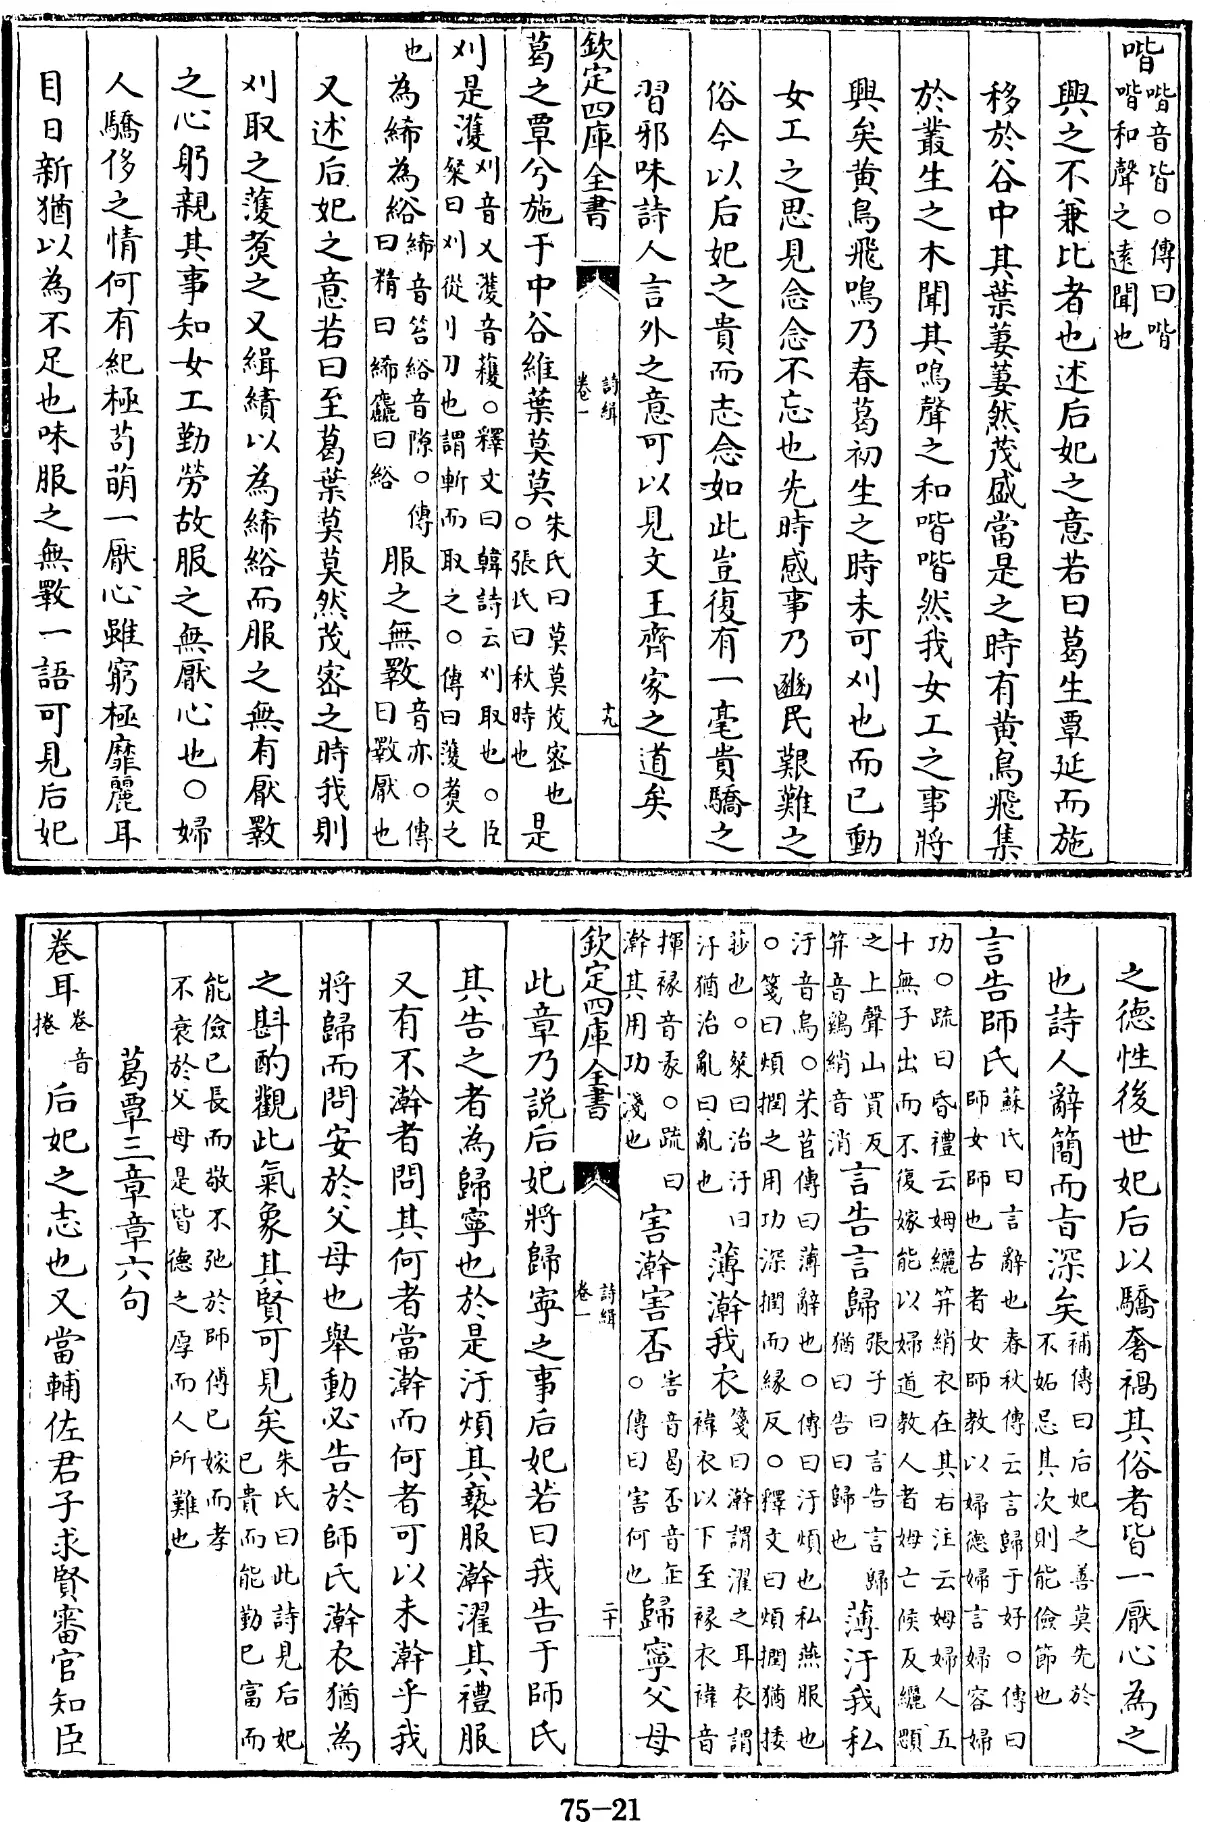 喈喈音皆○傳曰喈喈和聲之遠聞也
興之不兼比者也述后妃之意若曰葛生覃延而施
移於谷中其葉萋萋然茂盛當是之時有黄鳥飛集
於叢生之木聞其鳴聲之和喈喈然我女工之事將
興矣黄鳥飛鳴乃春葛初生之時未可刈也而已動
女工之思見念念不忘也先時感事乃豳民艱難之
俗今以后妃之貴而志念如此豈復有一毫貴驕之
習邪味詩人言外之意可以見文王齊家之道矣
欽定四庫全書
詩緝
卷一
十九
葛之覃兮施于中谷維葉莫莫朱氏曰莫莫茂密也○張氏曰秋時也是
刈是濩刈音乂濩音穫○釋文曰韓詩云刈取也○臣粲曰刈從刂刀也謂斬而取之○傳曰濩煑之
也為絺為綌絺音笞綌音隙○傳曰精曰絺麤曰綌服之無斁音亦○傳曰斁厭也
又述后妃之意若曰至葛葉莫莫然茂密之時我則
刈取之濩煑之又緝績以為絺綌而服之無有厭斁
之心躬親其事知女工勤勞故服之無厭心也○婦
人驕侈之情何有紀極苟萌一厭心雖窮極靡麗耳
目日新猶以為不足也味服之無斁一語可見后妃
之德性後世妃后以驕奢禍其俗者皆一厭心為之
也詩人辭簡而旨深矣補傳曰后妃之善莫先於不妬忌其次則能儉節也
言告師氏蘇氏曰言辭也春秋傳云言歸于好○傳曰師女師也古者女師教以婦德婦言婦容婦
功○疏曰昏禮云姆纚笄綃衣在其右注云姆婦人五十無子出而不復嫁能以婦道教人者姆亡候反纚㒹
之上聲山買反笄音鷄綃音消言告言歸張子曰言告言歸猶曰告曰歸也薄汙我私
汙音烏○芣苢傳曰薄辭也○傳曰汙煩也私燕服也○箋曰煩撋之用功深撋而緣反○釋文曰煩撋猶捼
莏也○粲曰治汙曰汙猶治亂曰亂也薄澣我衣箋曰澣謂濯之耳衣謂褘衣以下至褖衣褘音
揮褖音彖○疏曰澣其用功淺也害澣害否害音曷否音缶○傳曰害何也歸寧父母
欽定四庫全書
詩緝
卷一
二十
此章乃説后妃將歸寧之事后妃若曰我告于師氏
其告之者為歸寧也於是汙煩其䙝服澣濯其禮服
又有不澣者問其何者當澣而何者可以未澣乎我
將歸而問安於父母也舉動必告於師氏澣衣猶為
之斟酌觀此氣象其賢可見矣朱氏曰此詩見后妃已貴而能勤已富而
能儉已長而敬不弛於師傅已嫁而孝不衰於父母是皆德之厚而人所難也
葛覃三章章六句
卷耳卷音捲后妃之志也又當輔佐君子求賢審官知臣
75-21